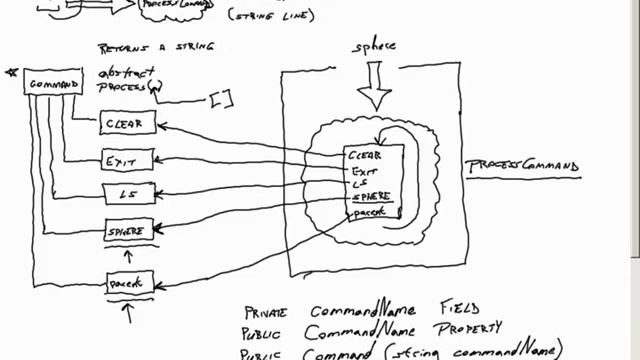 PROCESSCOMMAND
(STRING LINE)
RETURNS A STRING
sphere
COMMAND
abstract
PROCESS()
[]
CLEAR
EXIT
LS
SPHERE
parent
CLEAR
EXIT
LS
SPHERE
parent
PROCESSCOMMAND
PRIVATE CommandName FIELD
PUBLIC CommandName PROPERTY
PUBLIC Command (string commandName)